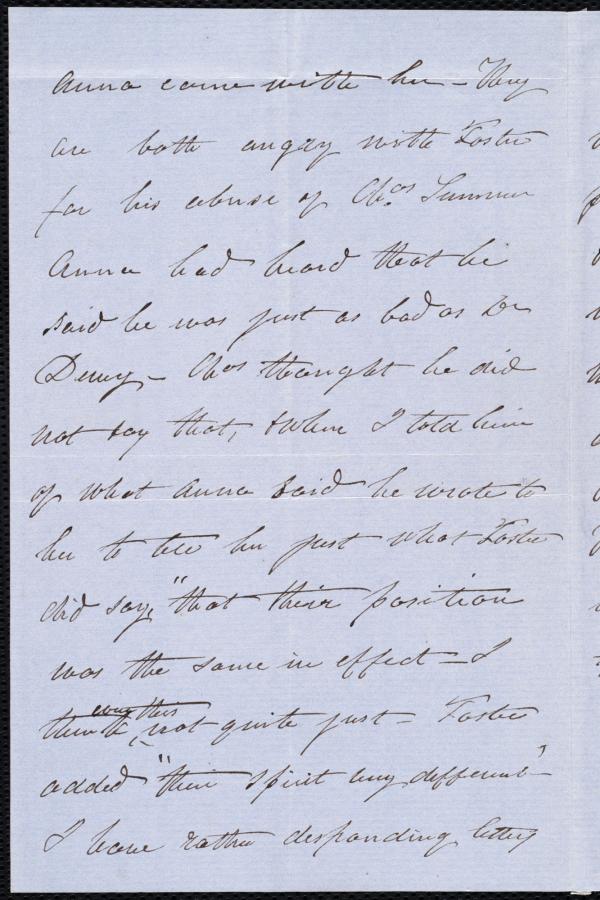 Anna came with her – They
are both angry with Foster
for his abuse of Chas Sumner
Anna had heard that he
said he was just as bad as Dr
Dewey – Chas thought he did
not say that, & when I told him
of what Anna said he wrote to
her to tell her just what Foster
did say, "that their position
was the same in effect – I
think even this not quite just – Foster
added "their spirit very different" –
I have rather desponding letters